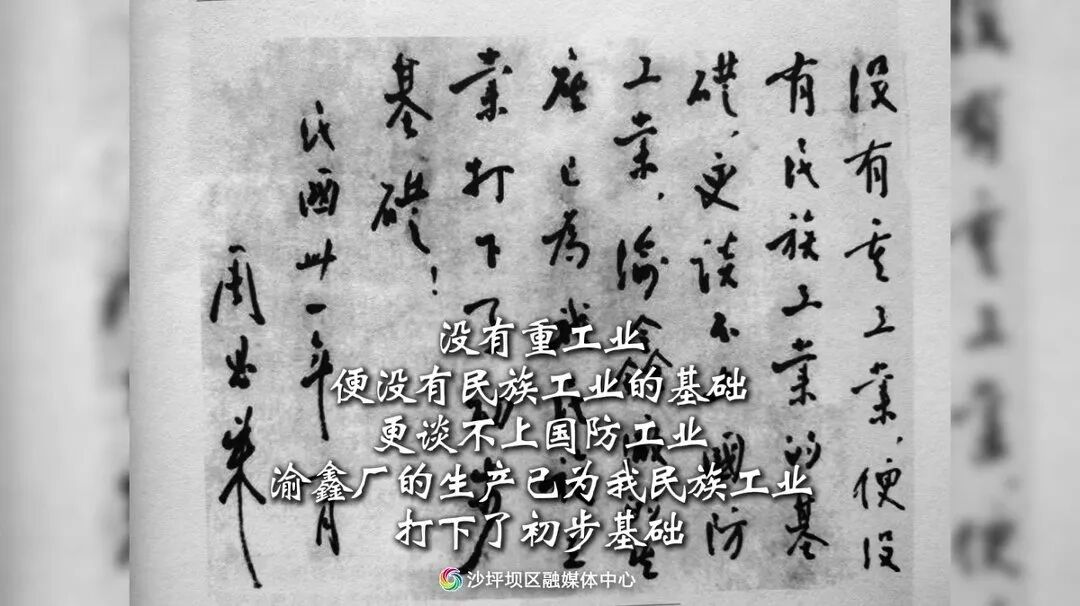 没有重工業，便没
有民族工業的基
礎，更談不上國防
工業，渝鑫廠的生
産已為我民族工
業打下了初步
基礎！
卅一年月
周恩来
没有重工业
便没有民族工业的基础
更谈不上国防工业
渝鑫厂的生产已为我民族工业
打下了初步基础
沙坪坝区融媒体中心